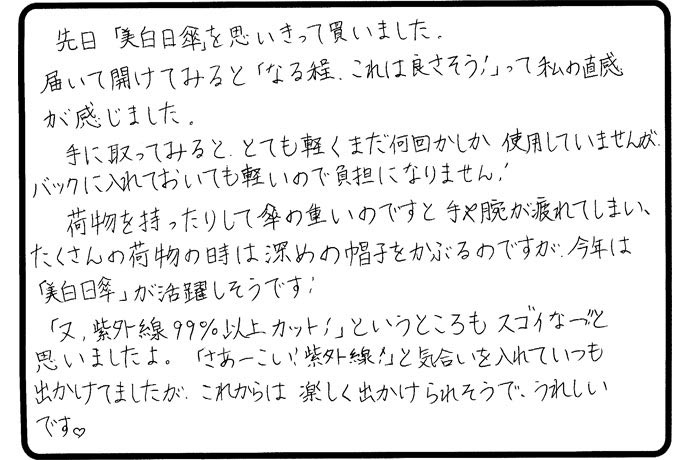 先日「美白日傘」を思いきって買いました。
届いて開けてみると「なる程、これは良さそう!」って私の直感
が感じました。
手に取ってみると、とても軽くまだ何回かしか使用していませんが、
バックに入れておいても軽いので負担になりません!
荷物を持ったりして傘の重いのですと手や腕が疲れてしまい、
たくさんの荷物の時は深めの帽子をかぶるのですが、今年は
「美白日傘」が活躍しそうです!
「又、紫外線99%以上カット!」というところもスゴイなーと
思いましたよ。「さあーこい!紫外線!」と気合いを入れていつも
出かけてましたが、これからは楽しく出かけられそうで、うれしい
です♡